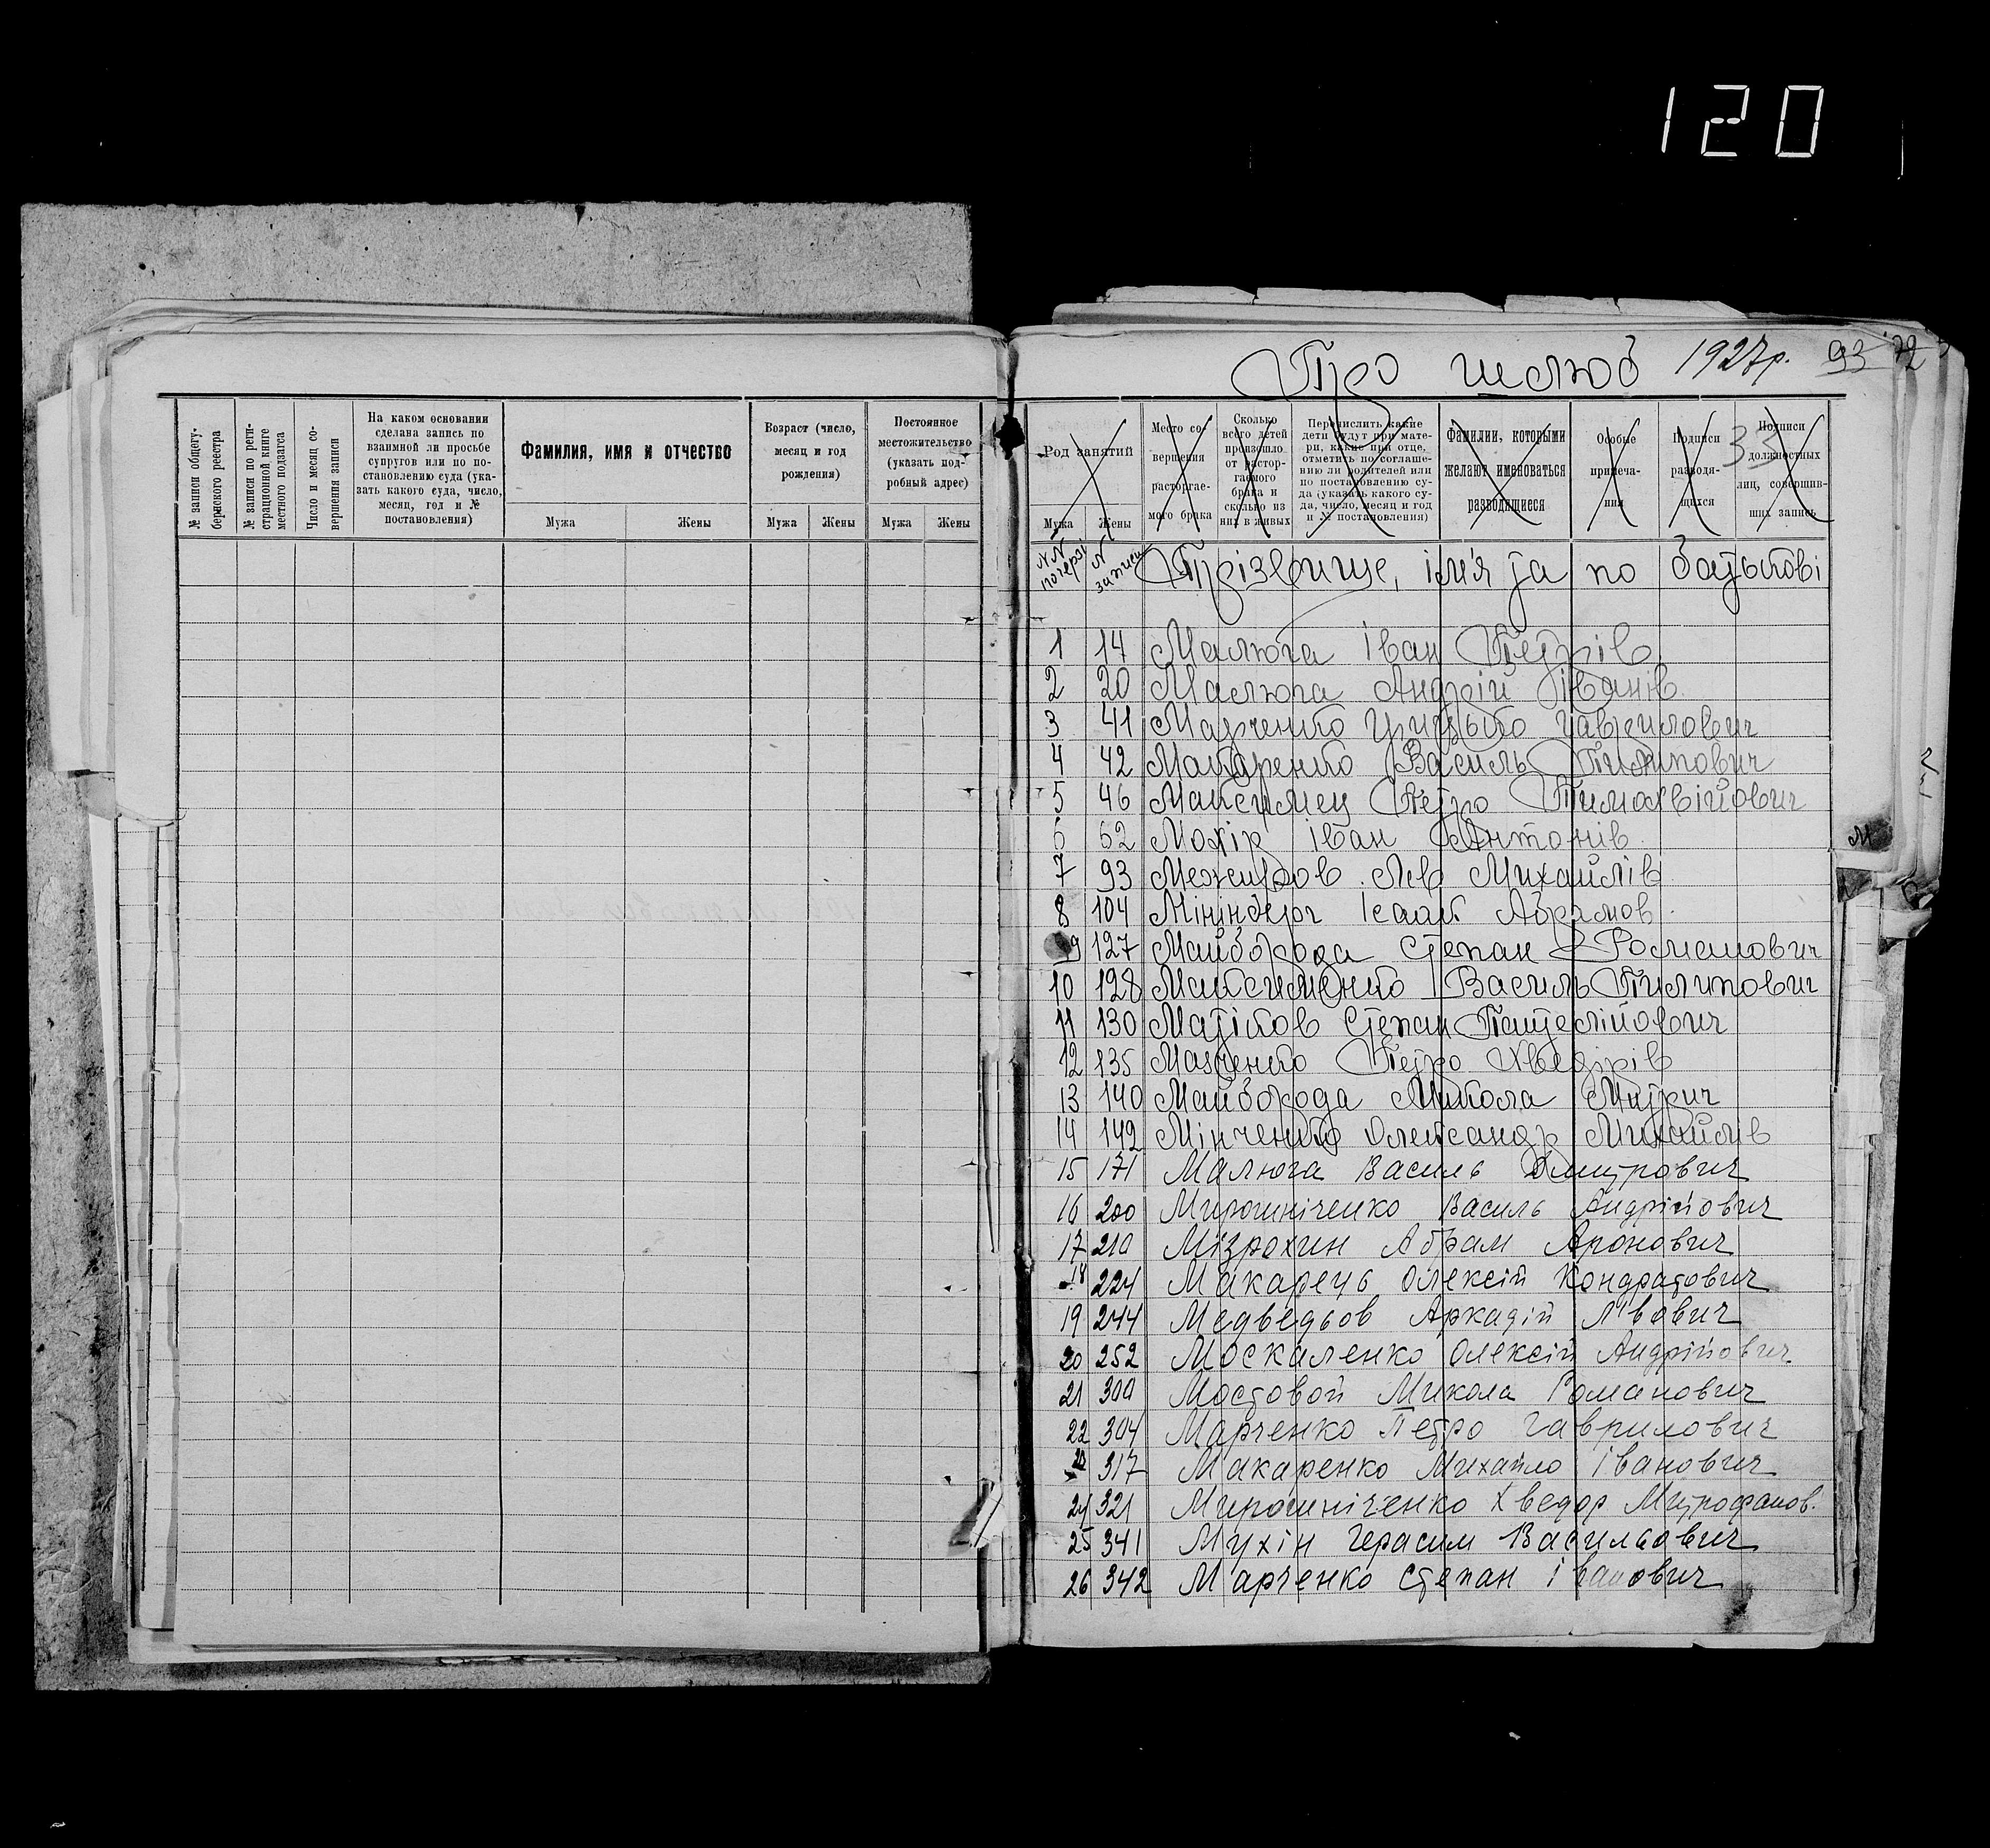 120
Про шлюб 1927р. 93 72
33
№ записи общегу-
бернского реестра
№ записи по реги-
страционной книге
местного подзагса
Число и месяц со-
вершения записи
На каком основании
сделана запись по
взаимной ли просьбе
супругов или по по-
становлению суда (ука-
зать какого суда, число,
месяц, год и №
постановления)
Фамилия, имя и отчество
Мужа Жены
Возраст (число,
месяц и год
рождения)
Мужа Жены
Постоянное
местожительство
(указать под-
робный адрес)
Мужа Жены
Род занятий
Мужа Жены
Место со-
вершения
расторгае-
мого брака
Сколько
всего детей
произошло
от растор-
гаемого
брака и
сколько из
них в живых
Перечислить какие
дети будут при мате-
ри, какие при отце,
отметить по соглаше-
нию ли родителей или
по постановлению су-
да (указать какого су-
да, число, месяц и год
и № постановления)
Фамилии, которыми
желают именоваться
разводящиеся
Особые
примеча-
ния
Подписи
разводя-
щихся
Подписи
должностных
лиц, совершив-
ших запись
№№ почерзі № записи Прізвище, ім'я та по батькові
1 14 Малюга Іван Петрів
2 20 Малюга Андрій Іванів
3 41 Марченко Грицько Гаврилович
4 42 Макаренко Василь Пилипович
5 46 Максимец Петро Тимохвійович
6 62 Мохір Іван Антонів
7 93 Межиров Лев Михайлів
8 104 Мінінберг Ісаак Абрамов
9 127 Майборода Степан Романович
10 128 Максименко Василь Пилипович
11 130 Матіков Степан Пантелійович
12 135 Марченко Петро Хведірів
13 140 Майборода Микола Митрич
14 142 Мінченко Олександр Михайлів
15 171 Малюга Василь Дмитрович
16 200 Мирошніченко Василь Андрійович
17 210 Мізрохин Абрам Аронович
18 224 Макарець Олексій Кондратович
19 244 Медведьов Аркадій Львович
20 252 Москаленко Олексій Андрійович
21 300 Мостовой Микола Романович
22 304 Марченко Петро Гаврилович
317 Макаренко Михайло Іванович
24 321 Мирошніченко Хведор Митрофанов.
25 341 Мухін Герасим Васильович
26 342 Марченко Степан Іванович
М